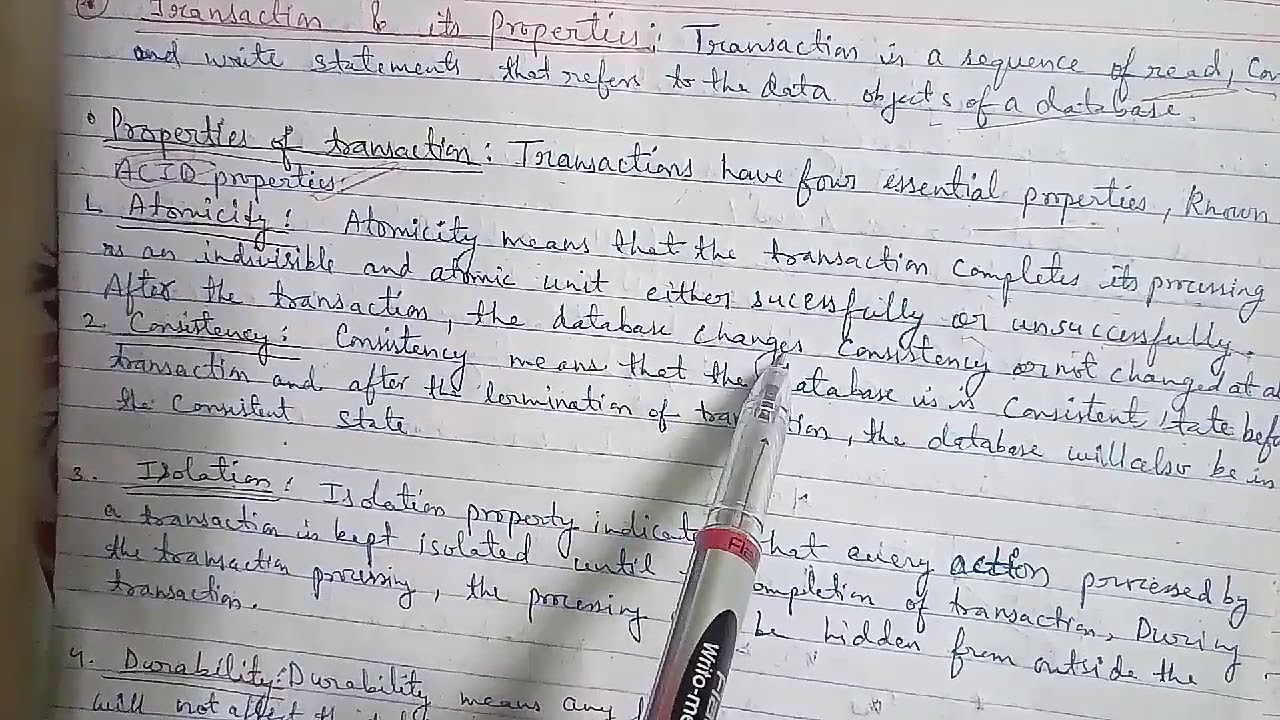 Transaction & its Properties: Transaction is a sequence of read,
and write statements that refers to the data objects of a database.
Properties of transaction: Transactions have four essential properties, known
ACID properties.
1. Atomicity: Atomicity means that the transaction completes its processing
as an indivisible and atomic unit either sucessfully or unsuccessfully.
After the transaction, the database changes consistency or not changed at
2. Consistency: Consistency means that the database is in consistent state
transaction and after the termination of, the database will also be in
the consistent state
3. Isolation: Isolation property that every action porcessed by
a transaction is kept isolated until completion of transaction, During
the transaction processing, the processing be hidden from outside the
transaction.
4. Durability: Durability means any
will not
Flai
Writo-me